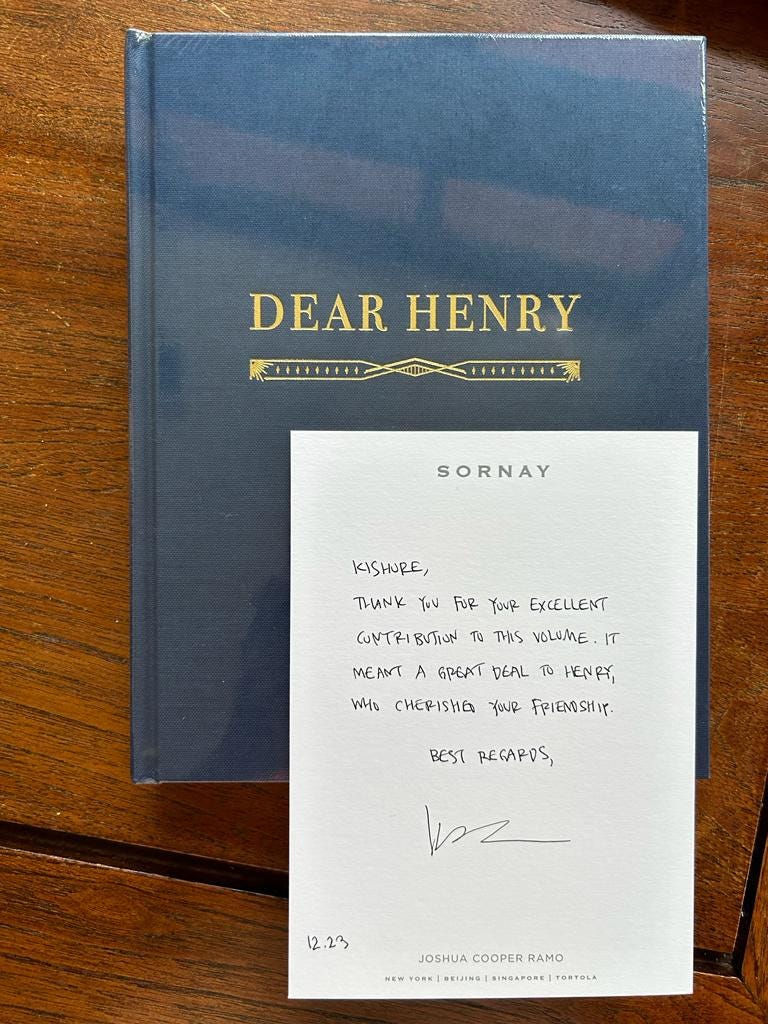 DEAR HENRY
SORNAY
KISHORE,
THANK YOU FOR YOUR EXCELLENT
CONTRIBUTION TO THIS VOLUME. IT
MEANT A GREAT DEAL TO HENRY,
WHO CHERISHED YOUR FRIENDSHIP.
BEST REGARDS,
12.23
JOSHUA COOPER RAMO
NEW YORK | BEIJING | SINGAPORE | TORTOLA